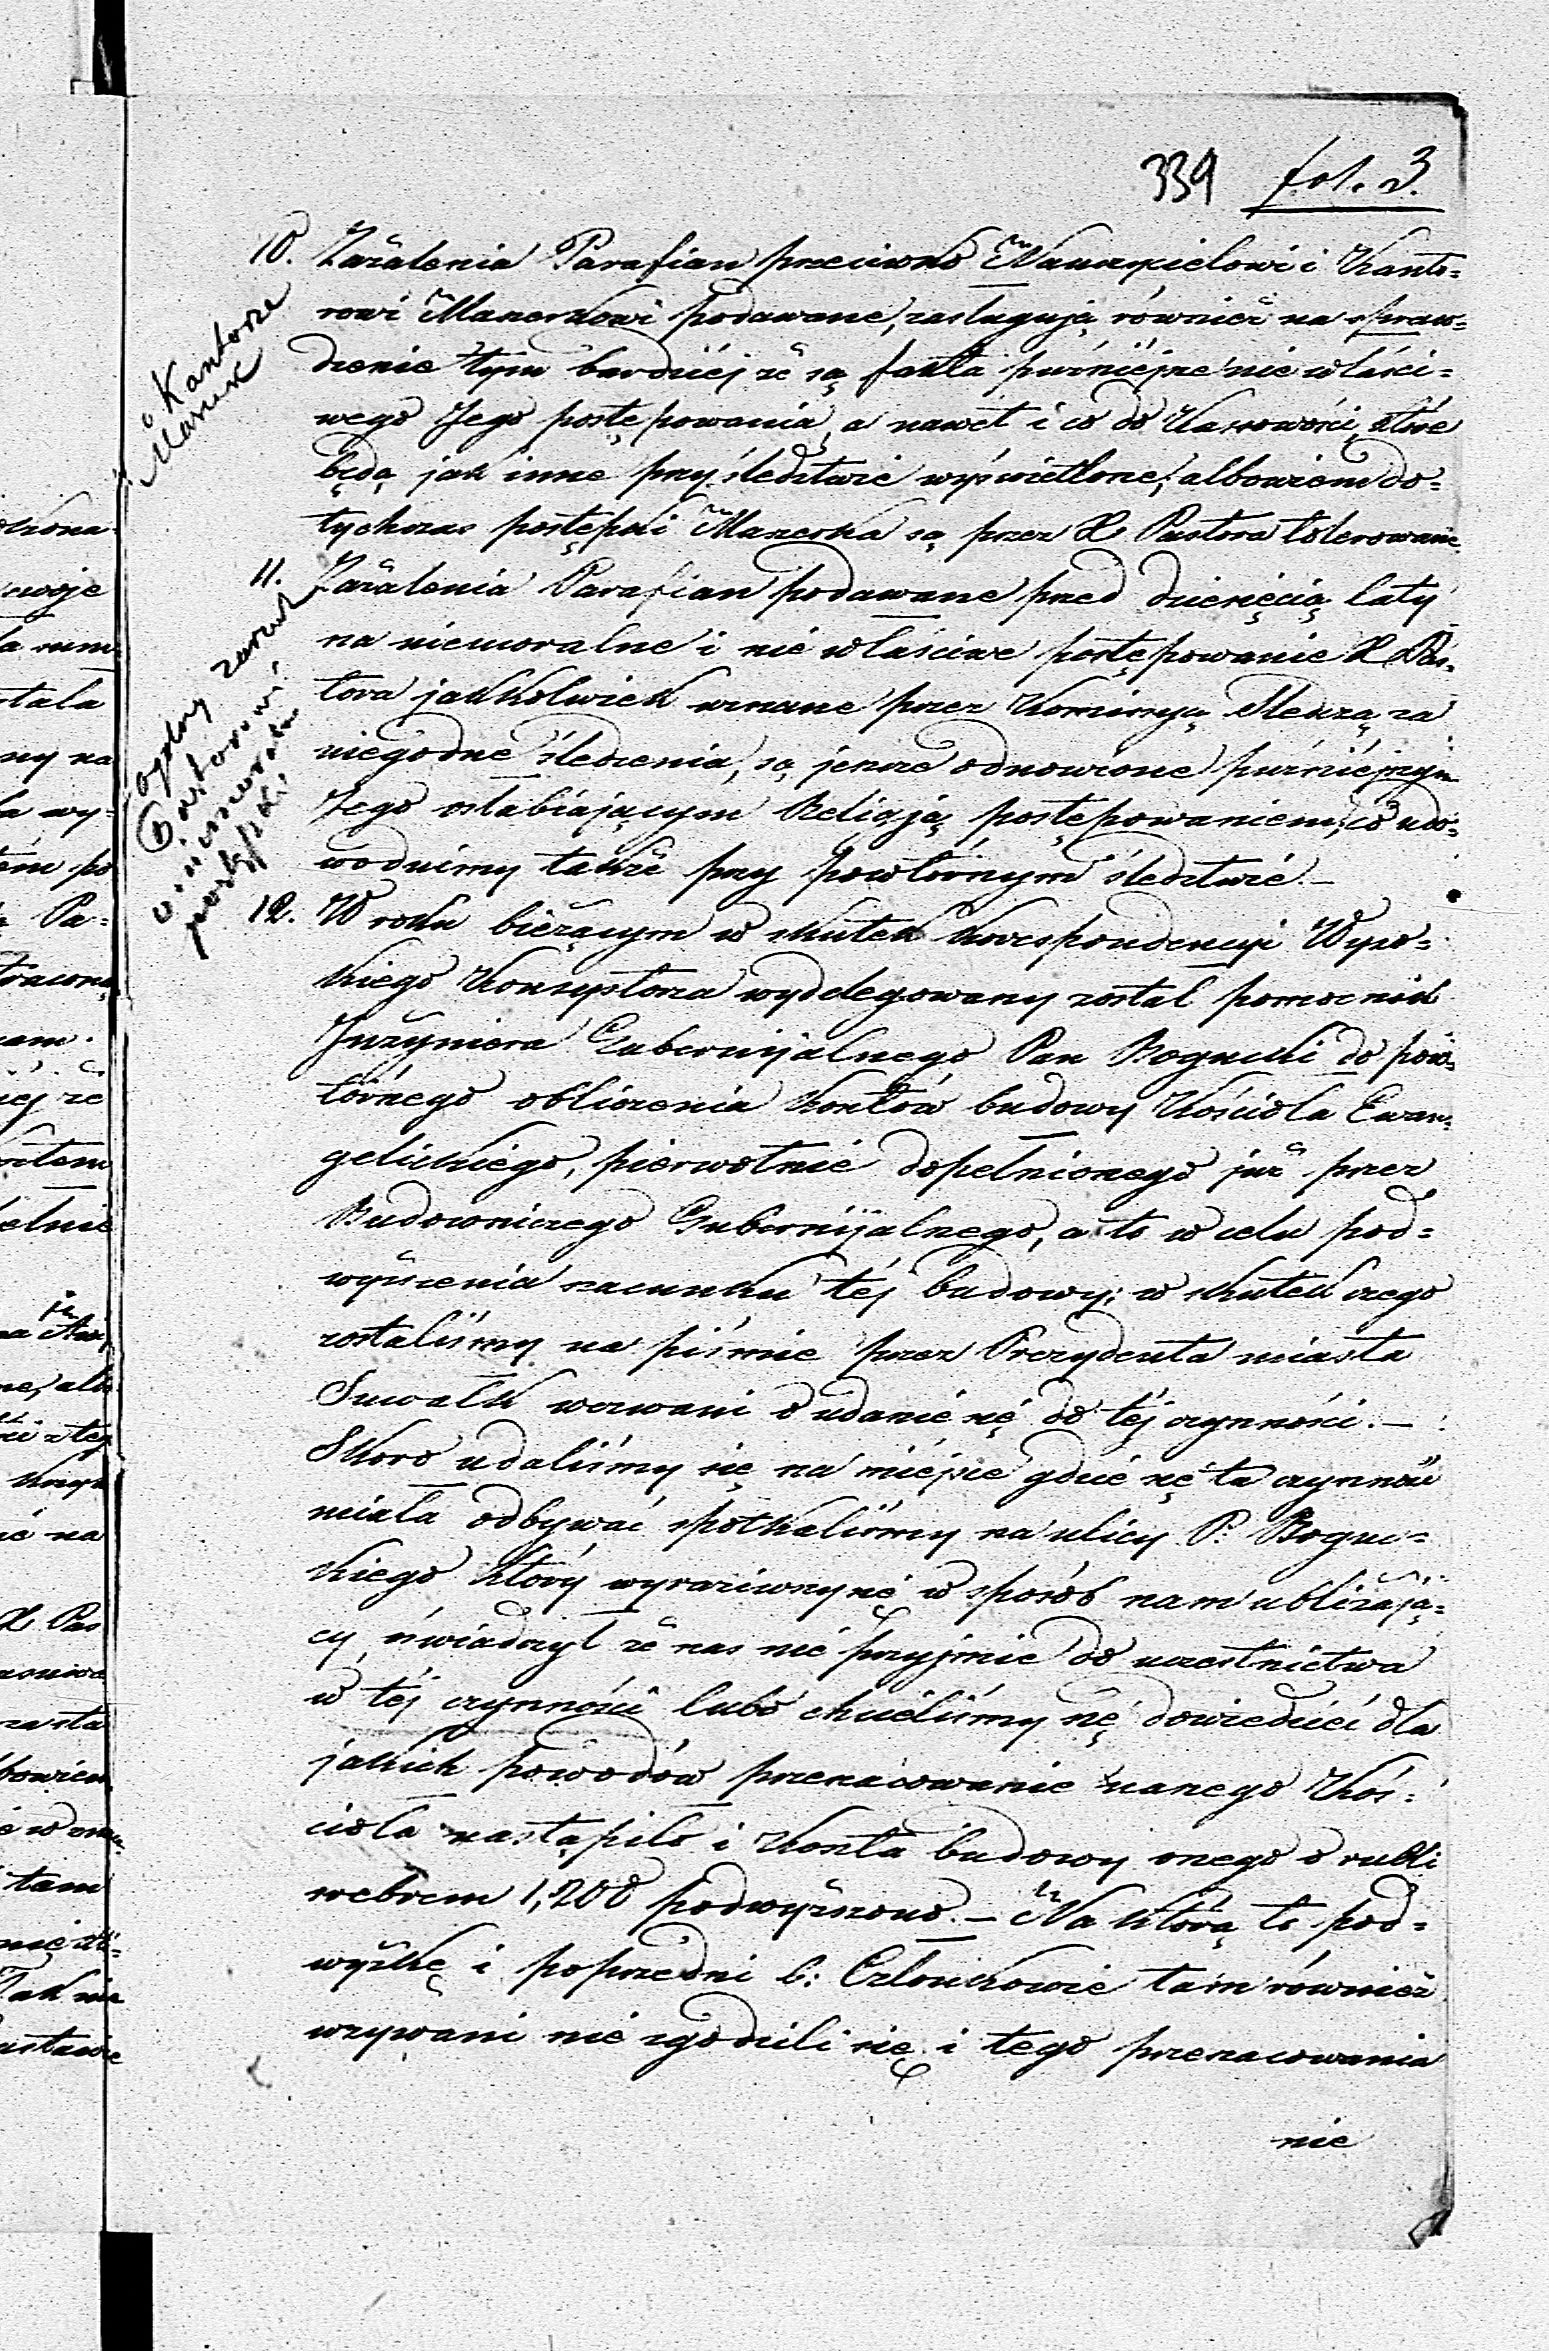 339 fol. 3.
10. Zażalenia Parafian przeciwko Nauczycielowi i Kanto=
rowi Mazerkowi podawane, zasługują również na spraw=
dzenie tym bardziéj że są fakta puźniéjsze nie właści=
wego Jego postępowania, a nawet i co do Kassowości, które
będą jak inne przy śledztwie wyświetlone, albowiem do=
tychczas postępki Mazerka są przez X Pastora tolerowane.
o Kantorze
Mazurk
11. Zażalenia Parafian podawane przed dziesięcią laty
na niemoralne i nie właściwe postępowanie X Pas=
tora jakkolwiek uznane przez Kommissyą Śledczą za
niegodne śledzenia, są jeszcze odnowione puźniéjszym
Jego osłabiającym Religją postępowaniem, co udo=
wodnimy także przy powtórnym śledztwie.—
ogólny zarzut
Pastorowi
o niemoralne
postępki
12. W roku bieżącym w skutek Korrespondencyi Wyso=
kiego Konsystorza wydelegowany został pomocnik
Inżyniera Gubernijalnego Pan Bogucki do pow=
tórnego obliczenia kosztów budowy Kościoła Ewan=
gelickiego, pierwotnie dopełnionego już przez
Budowniczego Gubernijalnego, a to w celu pod=
wyższenia szacunku téj budowy; w skutek czego
zostaliśmy na piśmie przez Prezydenta miasta
Suwałk wezwani o udanie się do téj czynności.—
Skoro udaliśmy się na miéjsce gdzie się ta czynność
miała odbywać spotkaliśmy na ulicy P. Boguc=
kiego który wyraziwszy się w sposób nam ubliżają=
cy, oświadczył że nas nie przyjmie do uczestnictwa
w téj czynności lubo chcieliśmy się dowiedzieć dla
jakich powodów przeszacowanie naszego Koś=
cioła nastąpiło i koszta budowy onego o rubli
srebrem 1,200 podwyższono.— Na którą to pod=
wyżkę i poprzedni b: Członkowie tam również
wzywani nie zgodzili się i tego przeszacowania
nie